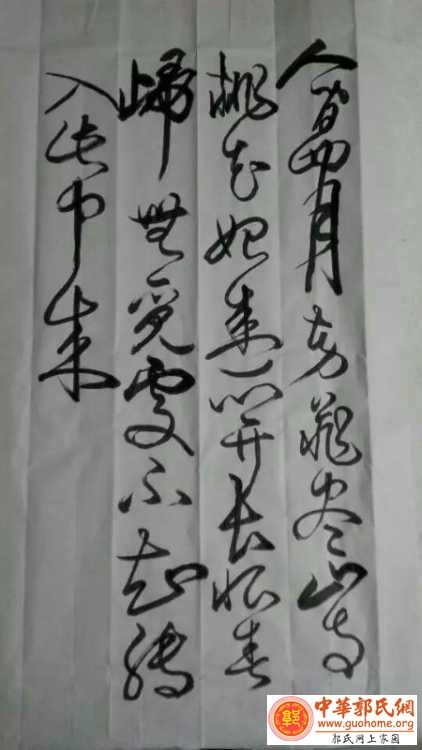 人間四月芳菲尽山寺
桃花始盛開長恨春
歸無覓處不知轉
入此中来
郭
中華郭氏網
www.guohome.org
郭氏网上家園